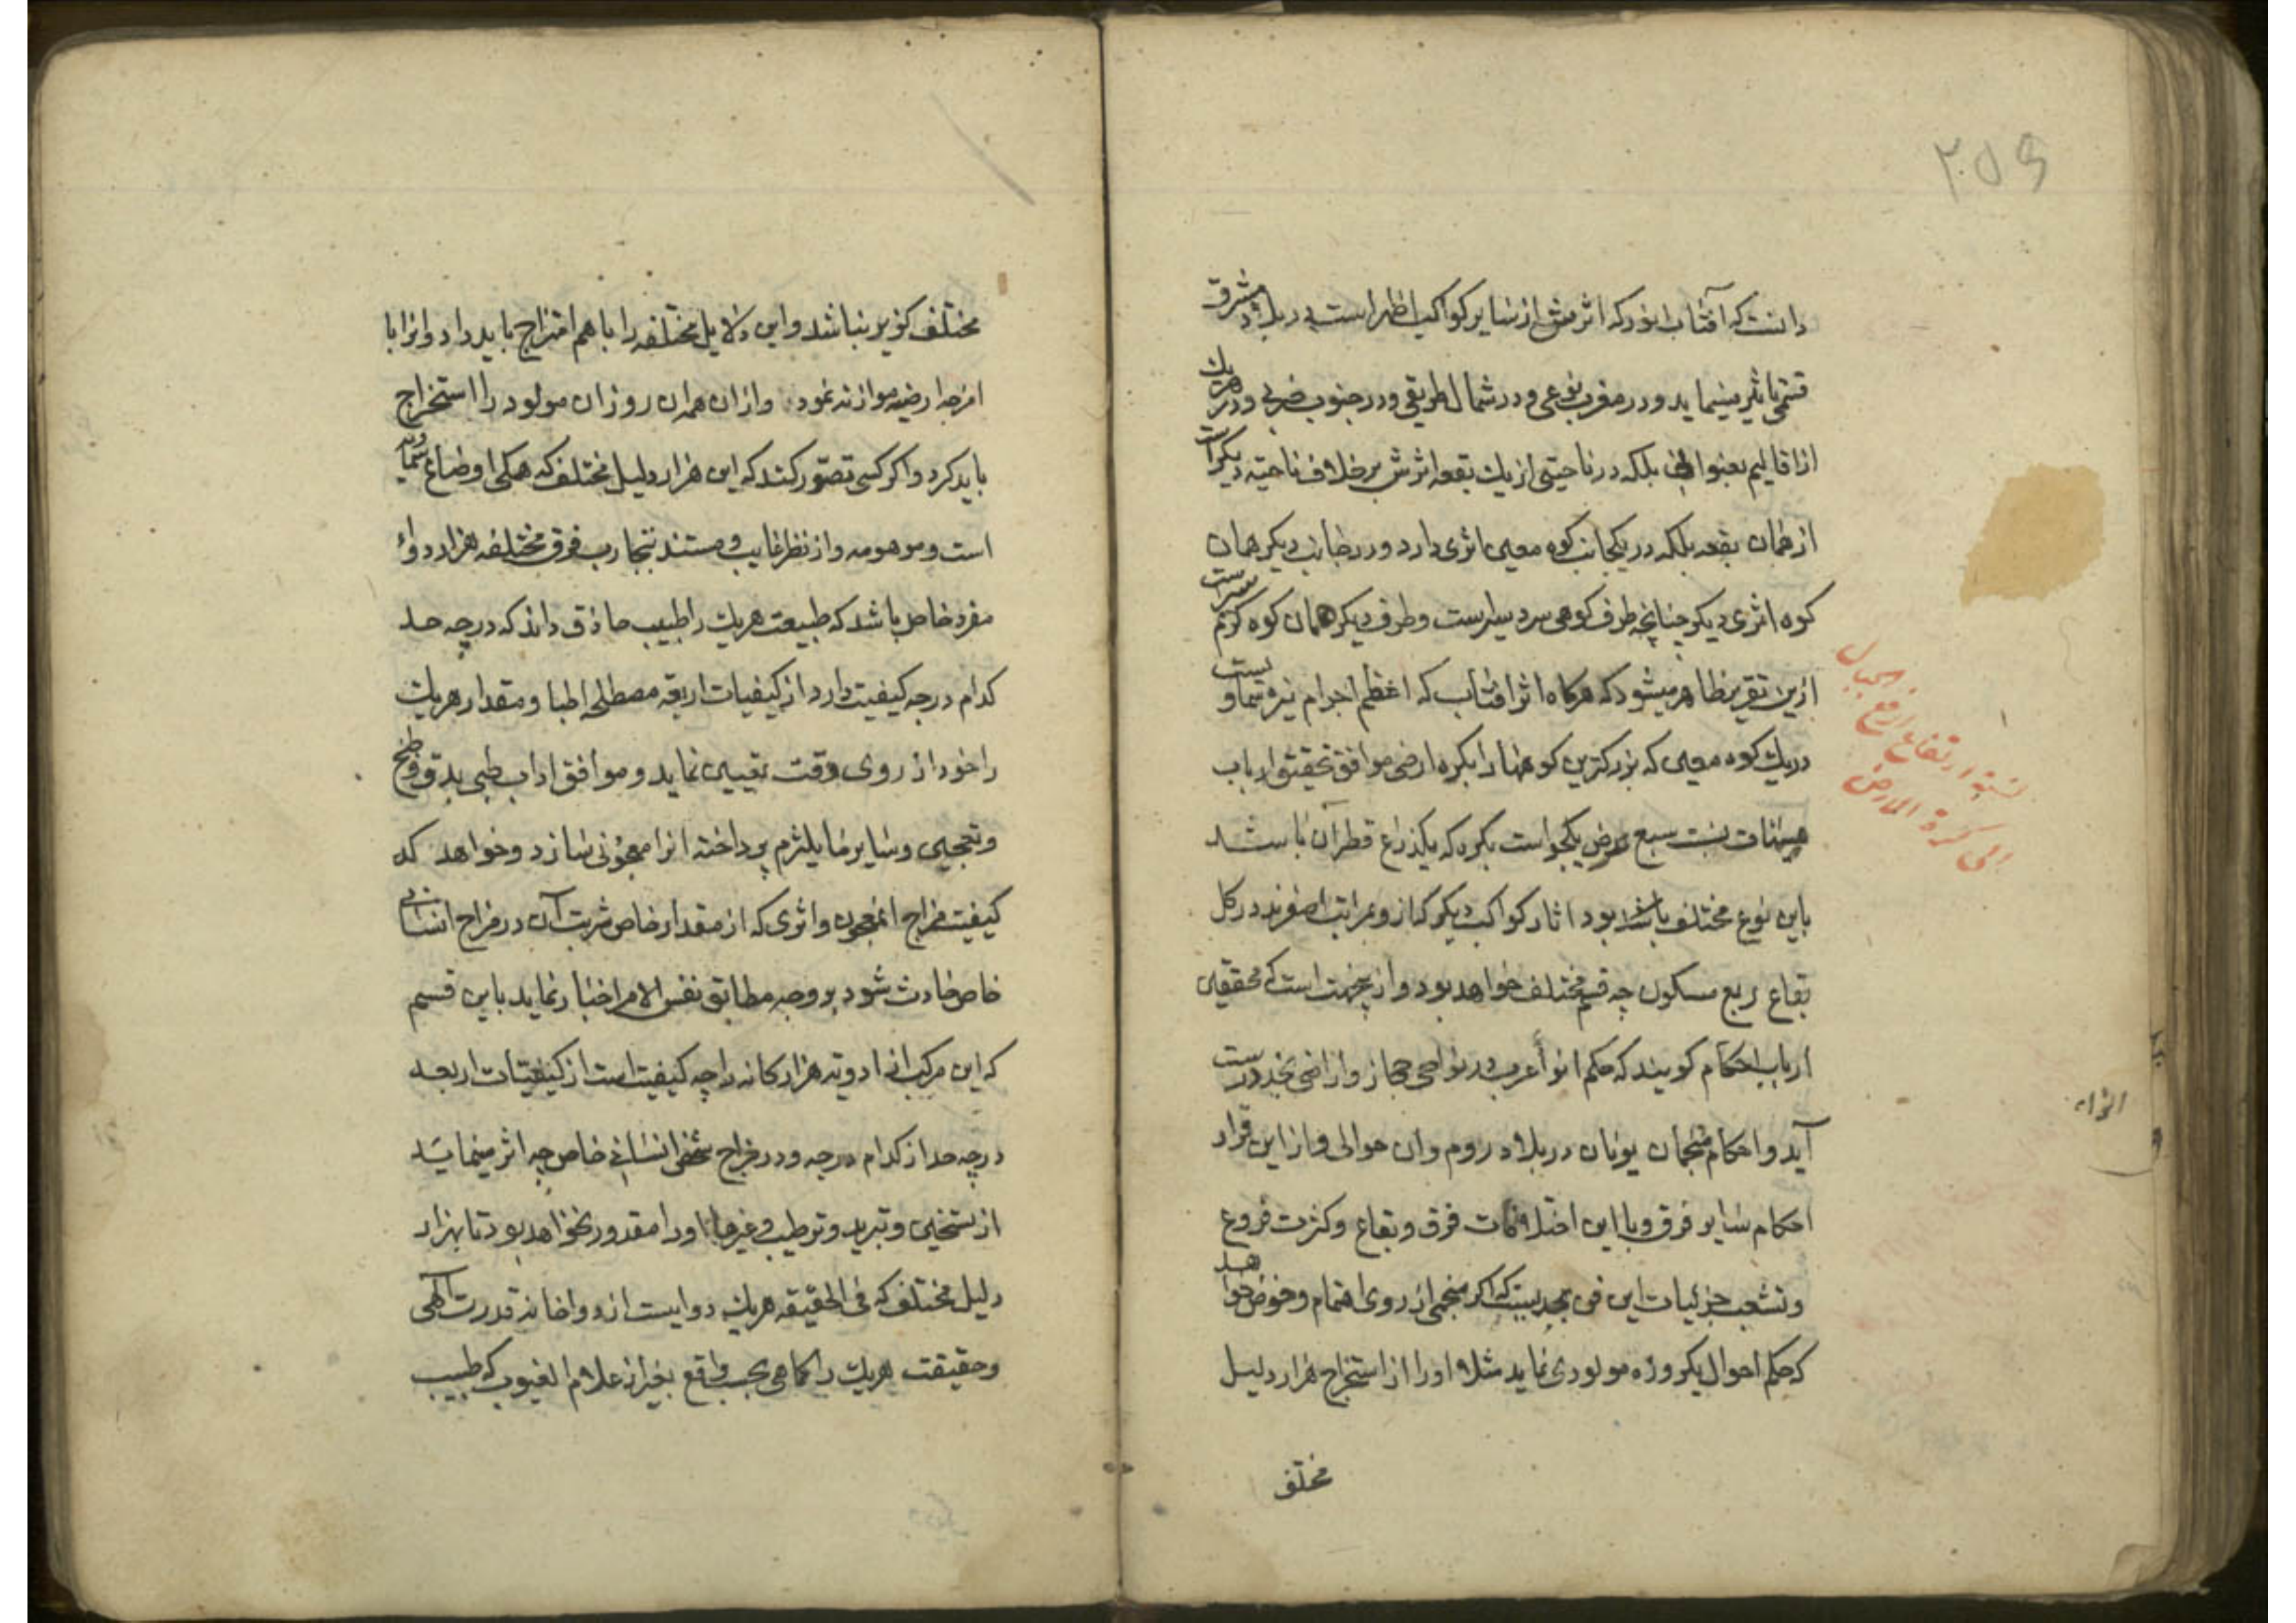 ۲۵۶
دانست که آفتاب انور که اثرش از سایر کواکب اظهر است در بلاد مشرق
قسمی تاثیر مینماید و در مغرب بنوعی و در شمال بطریقی و در جنوب ضربی و در هریک
از اقالیم بعنوانی بلکه در ناحیتی از یک بقعه اثرش بر خلاف ناحیه دیگر است
از همان بقعه بلکه در یکجانب کوه معین اثری دارد و در جانب دیگر همان
کوه اثری دیگر چنانچه طرف کوهی سردسیرست و طرف دیگر همان کوه گرم سیرست
ازین تقریر ظاهر میشود که هرگاه اثر آفتاب که اعظم اجرام نیره سماویست
در یک کوه معین که بزرگترین کوهها را بکره ارضی موافق تحقیق ارباب
هیئات نسبت سبع عرض یکجو است بکره که یکذراع قطر آن باشد
باین نوع مختلف باشد بود اثار کواکب دیگر که ازو بمراتب اصغرند در کل
بقاع ربع مسکون چه قسم مختلف خواهد بود و از ینجهت است که محققین
ارباب احکام گویند که حکم انواء عرب در نواحی حجاز و اراضی نجد درست
آید و احکام منجمان یونان در بلاد روم و ان حوالی و از این قرار
احکام سایر فرق و با این اختلافات فرق و بقاع و کثرت فروع
و تشعب جزئیات این فن بحدیست که اگر منجمی از روی اهتمام و خوض خواهد
که حکم احوال یکروزه مولودی نماید مثلا او را از استخراج هزار دلیل
مختلف
نسبة ارتفاع ارفع الجبال
الی کرة الارض
مختلف گزیر نباشد و این دلایل مختلفه را با هم امتزاج باید داد و انرا با
امزجه ارضیه موازنه نمود و ازان همه ان روز ان مولود را استخراج
باید کرد و اگر کسی تصور کند که این هزار دلیل مختلف که همگی اوضاع سماویه
است و موهومه و از نظر غایب و مستند بتجارب فرق مختلفه هزار دواء
مفرد خاص باشد که طبیعت هریک را طبیب حاذق داند که در چه حد
کدام درجه کیفیت دارد از کیفیات اربعه مصطلحه اطبا و مقدار هریک
را خود از روی وقت تعیین نماید و موافق اداب طبی بدق و طبخ
و تعجین و سایر ما یلتزم پرداخته انرا معجونی سازد و خواهد که
کیفیت مزاج انمعجون و اثری که از مقدار خاص شربت آن در مزاج انسانی
خاص حادث شود بر وجه مطابق نفس الامر اخبار نماید باین قسم
که این مرکب از ادویه هزارگانه را چه کیفیت است از کیفیات اربعه
در چه حد از کدام درجه و در مزاج شخص انسانی خاص چه اثر مینماید
از تسخین و تبرید و ترطیب و غیرها او را مقدور نخواهد بود تا بهزار
دلیل مختلف که فی الحقیقه هریک دوایست از دواخانه قدرت آلهی
و حقیقت هریک را کما هی بحسب واقع بغیر از علام الغیوب که طبیب